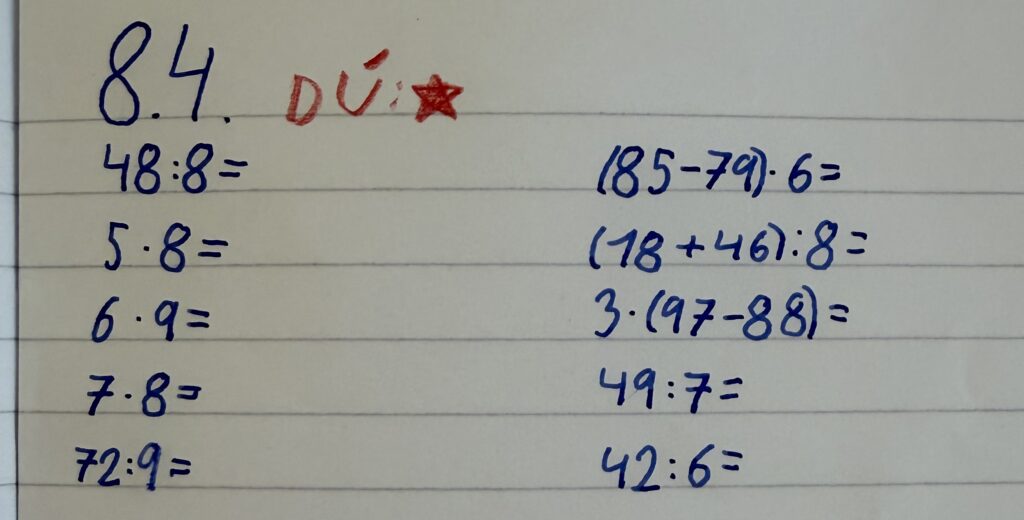 8.4. DÚ:★
48:8=
5·8=
6·9=
7·8=
72:9=
(85-79)·6=
(18+46):8=
3·(97-88)=
49:7=
42:6=